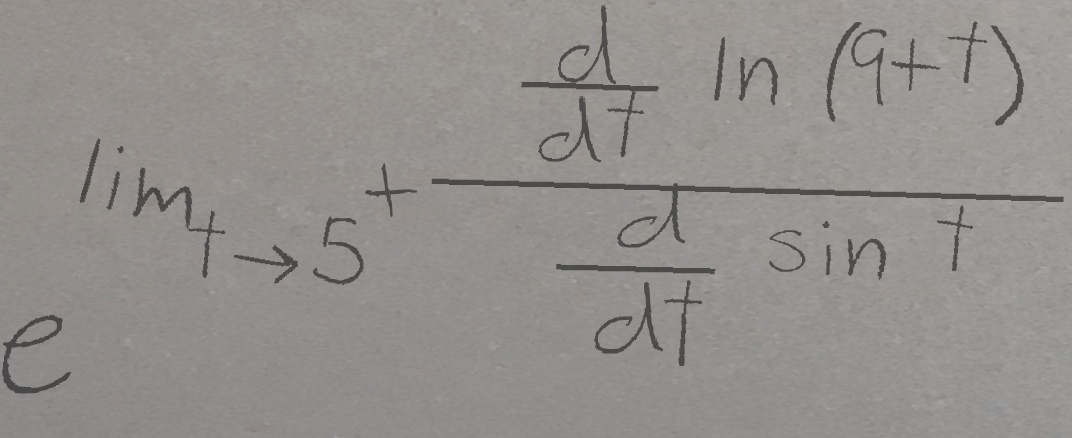 e^{\lim_{t \to 5^+} \frac{\frac{d}{dt} \ln (9+t)}{\frac{d}{dt} \sin t}}